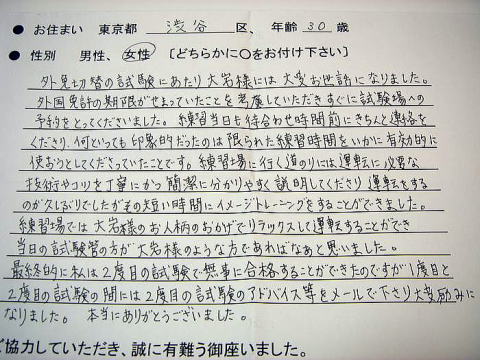 ● お住まい 東京都 渋谷 区、 年齢 30 歳
● 性別 男性、 女性 〔どちらかに○をお付け下さい〕
外免切替の試験にあたり大岩様には大変お世話になりました。
外国免許の期限がせまっていたことを考慮していただきすぐに試験場への
予約をとってくださいました。練習当日も待合わせ時間前にきちんと連絡を
くださり、何といっても印象的だったのは限られた練習時間をいかに有効的に
使おうとしてくださっていたことです。練習場に行く道のりには運転に必要な
技術やコツを丁寧にかつ簡潔に分かりやすく説明してくださり運転をする
のが久しぶりでしたがその短い時間にイメージトレーニングをすることができました。
練習場では大岩様のお人柄のおかげでリラックスして運転することができ
当日の試験官の方が大岩様のような方であればなぁと思いました。
最終的に私は2度目の試験で無事に合格することができたのですが1度目と
2度目の試験の間には2度目の試験のアドバイス等をメールで下さり大変励みに
なりました。 本当にありがとうございました。
ご協力していただき、誠に有難う御座いました。